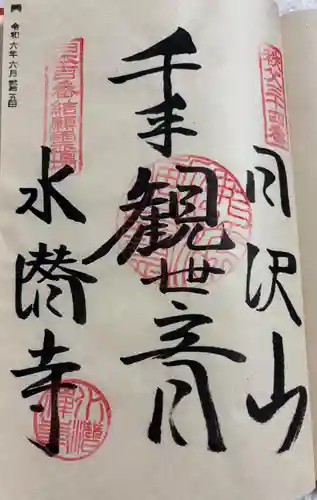 秩父三十四番
日沢山
千手
観世音
日本百番結願霊場
水潜寺
令和六年六月弐拾五日